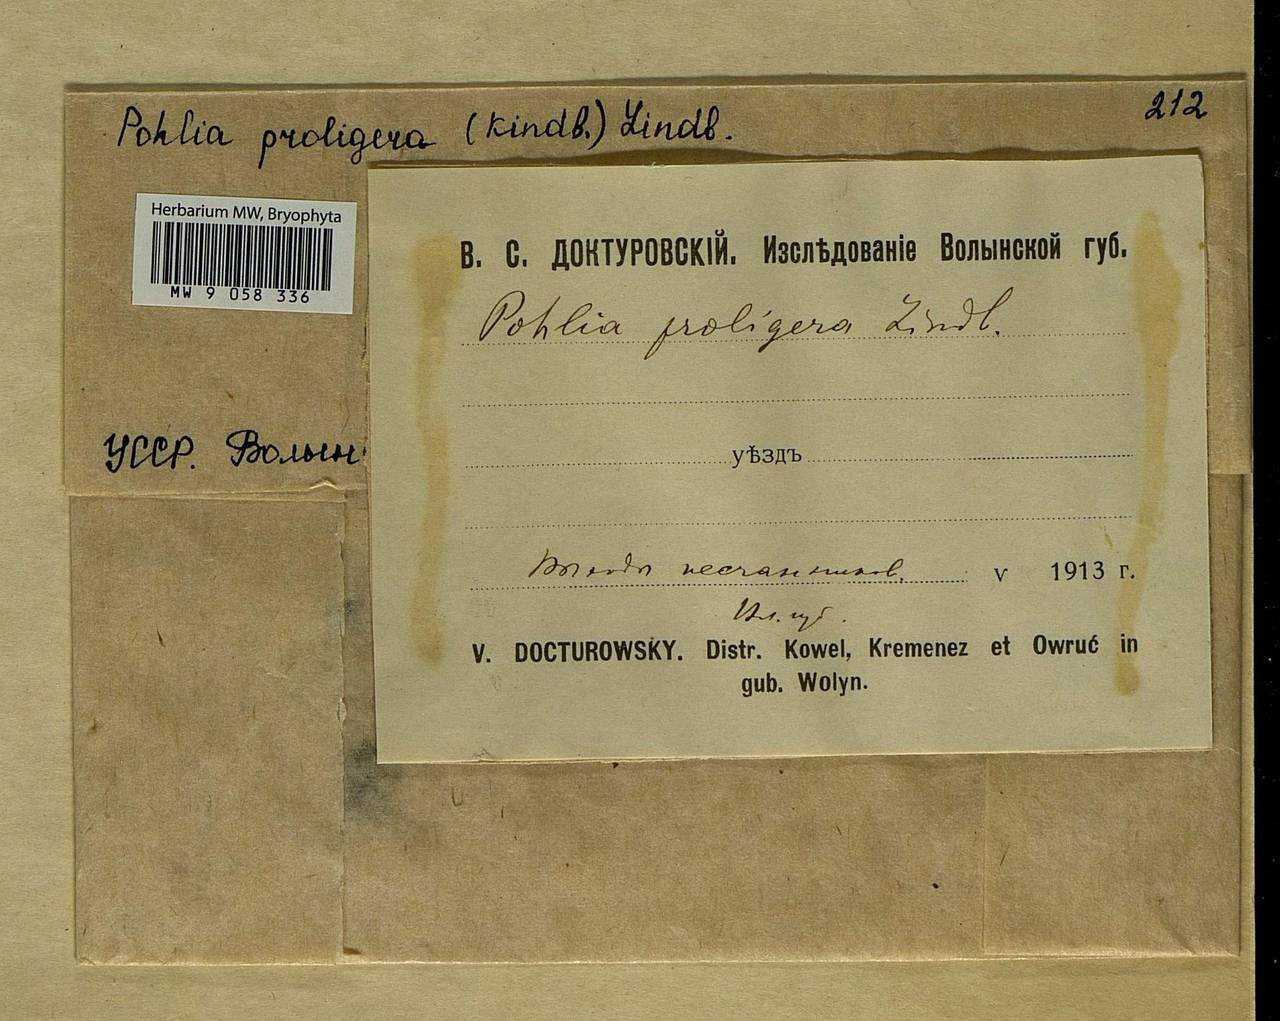 Pohlia proligera (Kindb.) Lindb.
212
Herbarium MW, Bryophyta
MW 9 058 336
В. С. ДОКТУРОВСКІЙ. Изслѣдованіе Волынской губ.
Pohlia proligera Lindb.
уѣздъ
УССР. Волын
песчаников.
v 1913 г.
V. DOCTUROWSKY. Distr. Kowel, Kremenez et Owruć in
gub. Wolyn.